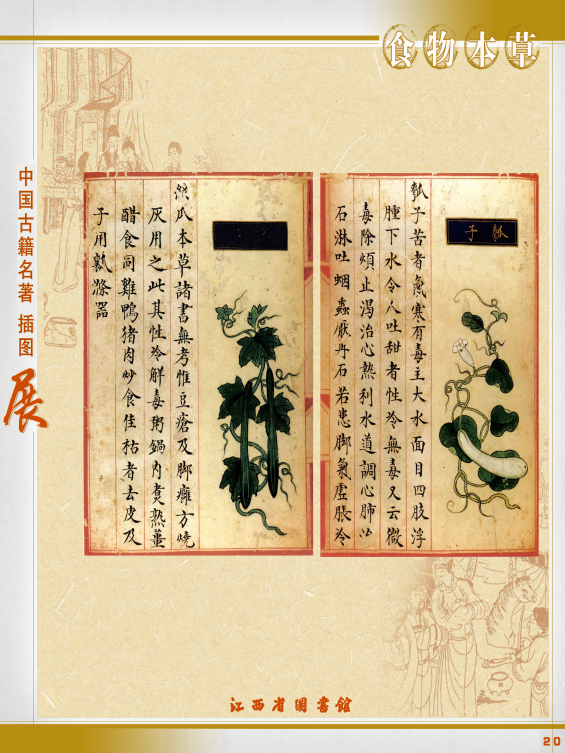 食物本草
中国古籍名著插图
展
瓠子
瓠子苦者氣寒有毒主大水面目四肢浮
腫下水令人吐甜者性冷無毒又云微
毒除煩止渴治心熱利水道調心肺治
石淋吐蛔蟲厭丹石若患脚氣虛脹冷
絲瓜本草諸書無考惟豆瘡及脚癰方燒
灰用之此其性冷解毒粥鍋内煑熟薑
醋食同雞鴨猪肉炒食佳枯者去皮及
子用瓤滌器
江西省图書館
20